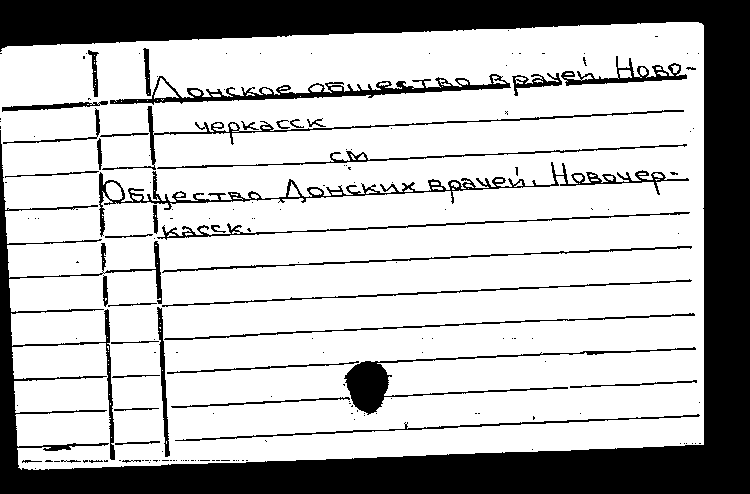 Донское общество врачей. Ново-
черкасск
см
Общество Донских врачей. Новочер-
касск.